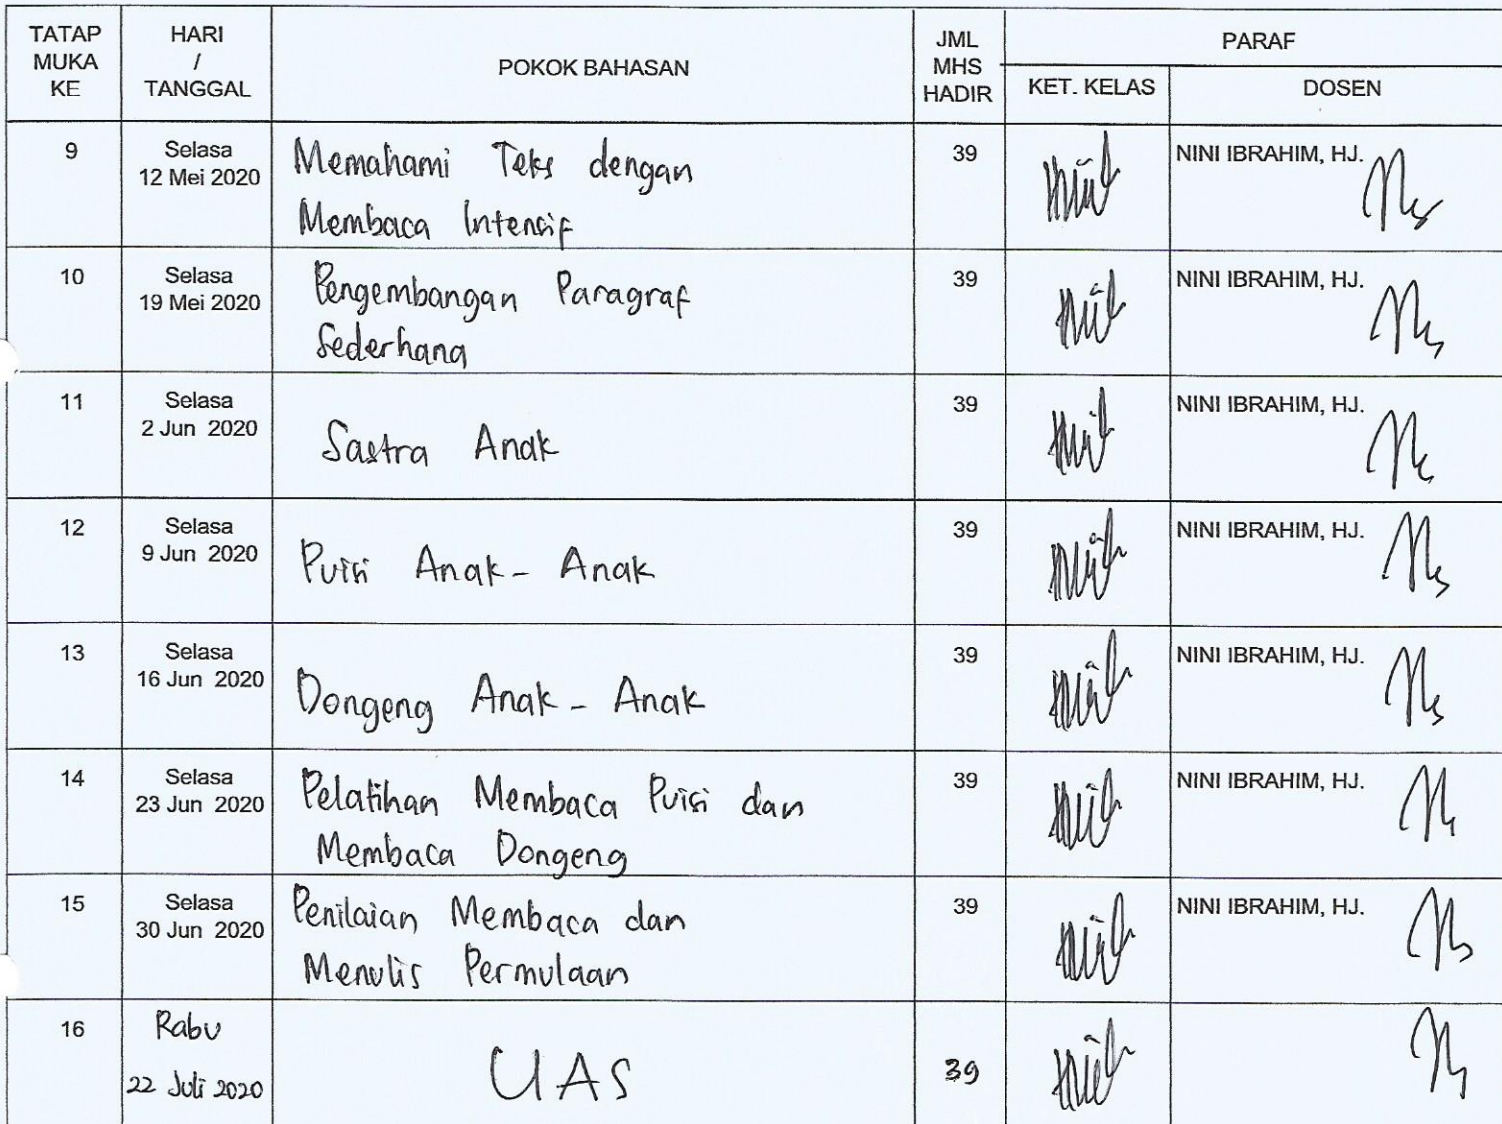 TATAP MUKA KE
HARI / TANGGAL
POKOK BAHASAN
JML MHS HADIR
PARAF
KET. KELAS
DOSEN
9
Selasa
12 Mei 2020
Memahami Teks dengan
Membaca Intensif
39
NINI IBRAHIM, HJ.
10
Selasa
19 Mei 2020
Pengembangan Paragraf
Sederhana
39
NINI IBRAHIM, HJ.
11
Selasa
2 Jun 2020
Sastra Anak
39
NINI IBRAHIM, HJ.
12
Selasa
9 Jun 2020
Puisi Anak - Anak
39
NINI IBRAHIM, HJ.
13
Selasa
16 Jun 2020
Dongeng Anak - Anak
39
NINI IBRAHIM, HJ.
14
Selasa
23 Jun 2020
Pelatihan Membaca Puisi dan
Membaca Dongeng
39
NINI IBRAHIM, HJ.
15
Selasa
30 Jun 2020
Penilaian Membaca dan
Menulis Permulaan
39
NINI IBRAHIM, HJ.
16
Rabu
22 Juli 2020
UAS
39